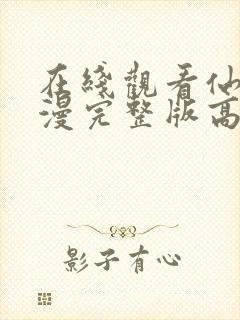 在綫觀看仙
漫完整版高
影子有心